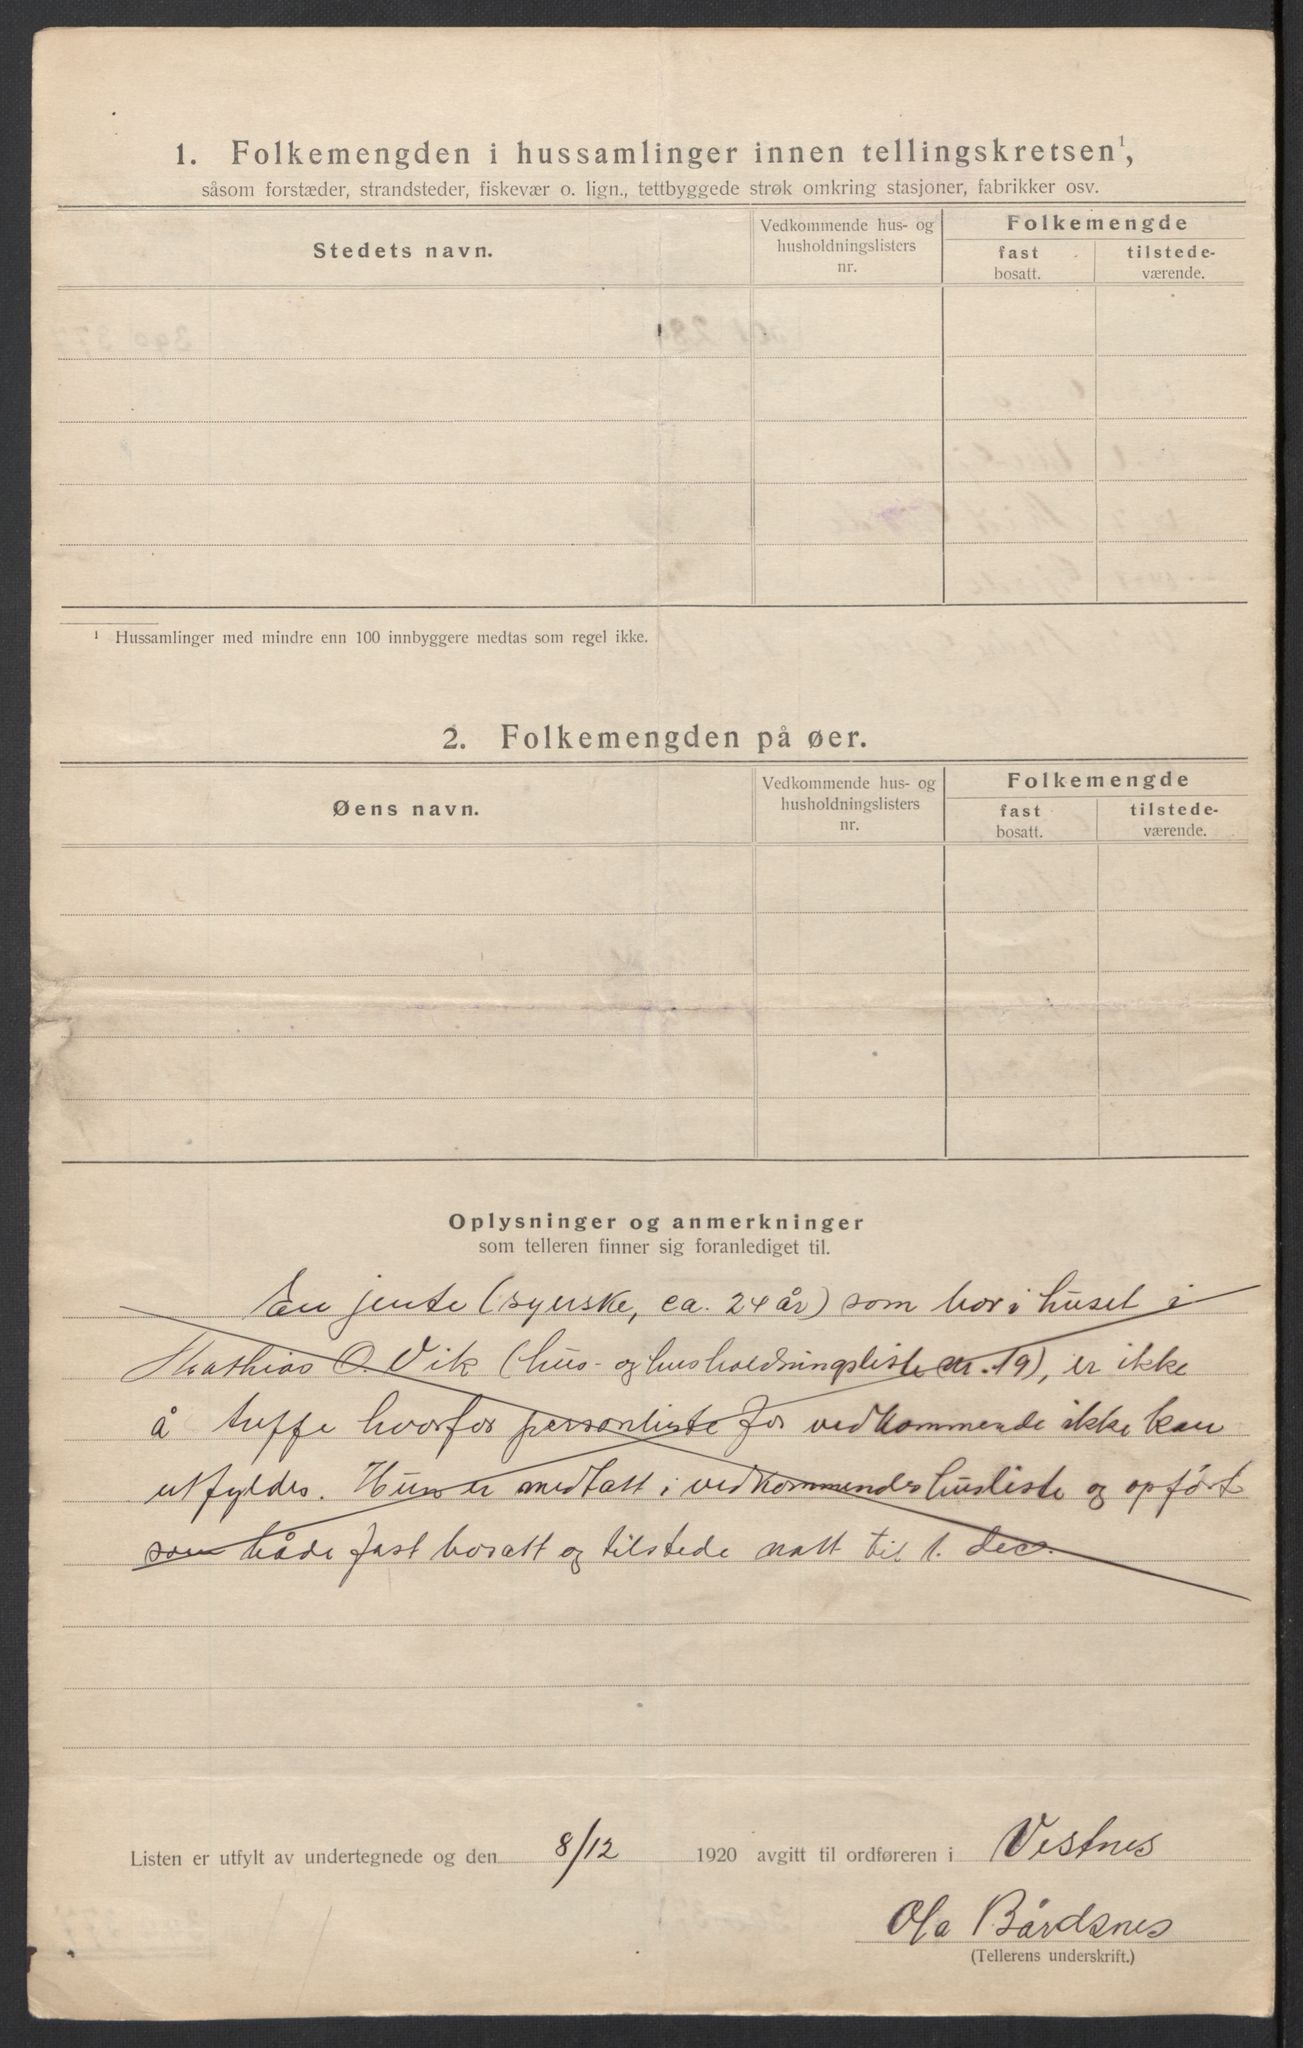 1. Folkemengden i hussamlinger innen tellingskretsen¹,
såsom forstæder, strandsteder, fiskevær o. lign., tettbyggede strøk omkring stasjoner, fabrikker osv.
Stedets navn.
Vedkommende hus- og
husholdningslisters
nr.
Folkemengde
fast
bosatt.
tilstede-
værende.
¹ Hussamlinger med mindre enn 100 innbyggere medtas som regel ikke.
2. Folkemengden på øer.
Øens navn.
Vedkommende hus- og
husholdningslisters
nr.
Folkemengde
fast
bosatt.
tilstede-
værende.
Oplysninger og anmerkninger
som telleren finner sig foranlediget til.
En jente (syerske, ca. 24 år) som bor i huset i
Mathias O. Vik (hus- og husholdningsliste nr. 19), er ikke
å treffe hvorfor personliste for vedkommende ikke kan
utfyldes. Hun er medtatt i vedkommendes husliste og opført
som både fast bosatt og tilstede natt til 1. des.
Listen er utfylt av undertegnede og den 8/12 1920 avgitt til ordføreren i Vestnes
Ola Bårdsnes
(Tellerens underskrift.)